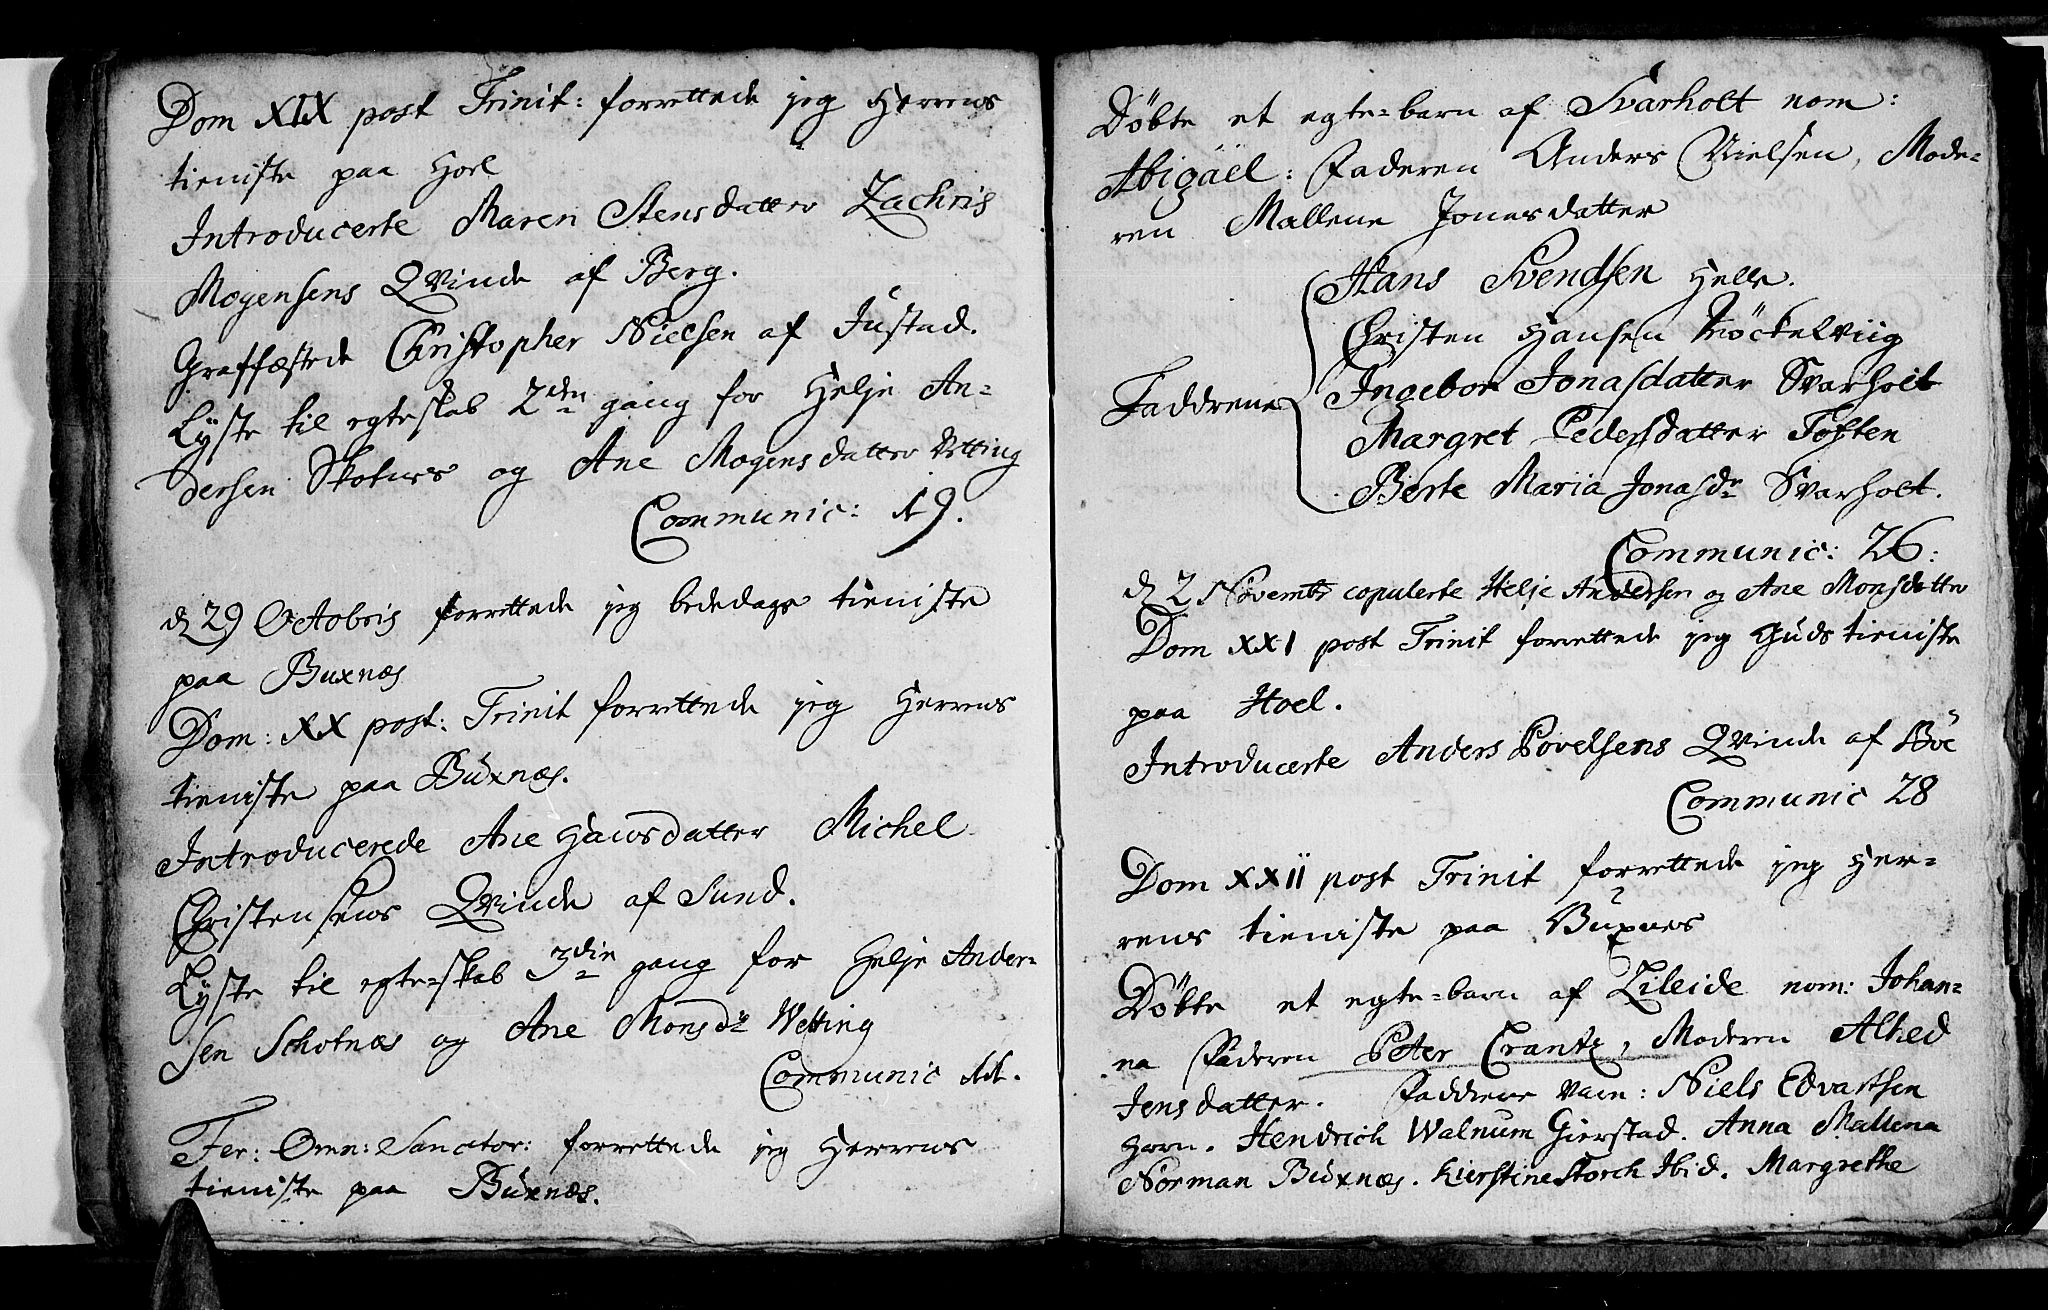 Dom XIX post Trinit: forrettede jeg Herrens
tieniste paa Hoel
Introducerte Maren Stensdatter Zachris
Mogensens Qvinde af Berg.
Graffæstede Christopher Nielsen af Justad.
Lyste til egteskab 2den gang for Helje An-
dersen Skotnes og Ane Mogensdatter Vetting
Communic: 19.
d 29 Octobris forrettede jeg bededags tieniste
paa Buxnæs
Dom: XX post: Trinit forrettede jeg Herrens
tieniste paa Buxnæs.
Introducerede Ane Hansdatter Michel
Christensens Qvinde af Sund.
Lyste til egte-skab 3die gang for Helje Ander-
sen Schotnæs og Ane Monsdr Vetting
Communic 11.
Fer: Omn: Sanctor: forrettede jeg Herrens
tieniste paa Buxnæs.
Döbte et egte-barn af Svarholt nom:
Abigäel: Faderen Anders Nielsen, Mode-
ren Mallene Jonasdatter
Hans Svendsen Helle.
Christen Hansen Möckelviig
Faddrene Ingebor Jonasdatter Svarholt
Margret Pedersdatter Toften
Berte Maria Jonasdr Svarholt.
Communic: 26:
d 2 Novembr copulerte Helje Andersen og Ane Monsdatter
Dom XXI post Trinit forrettede jeg Guds tieniste
paa Hoel.
Introducerte Anders Povelsens Qvinde af Böe
Communic 28
Dom XXII post Trinit forrettede jeg Her-
rens tieniste paa Buxnes
Döbte et egte-barn af Lileide nom: Johan-
na Faderen Peter Crantz, Moderen Alhed
Jensdatter. Faddrene vare: Niels Edvartsen
Horn. Hendrich Walnum Gierstad. Anna Mallena
Norman Buxnæs. Kierstine Storch Ibid. Margrethe